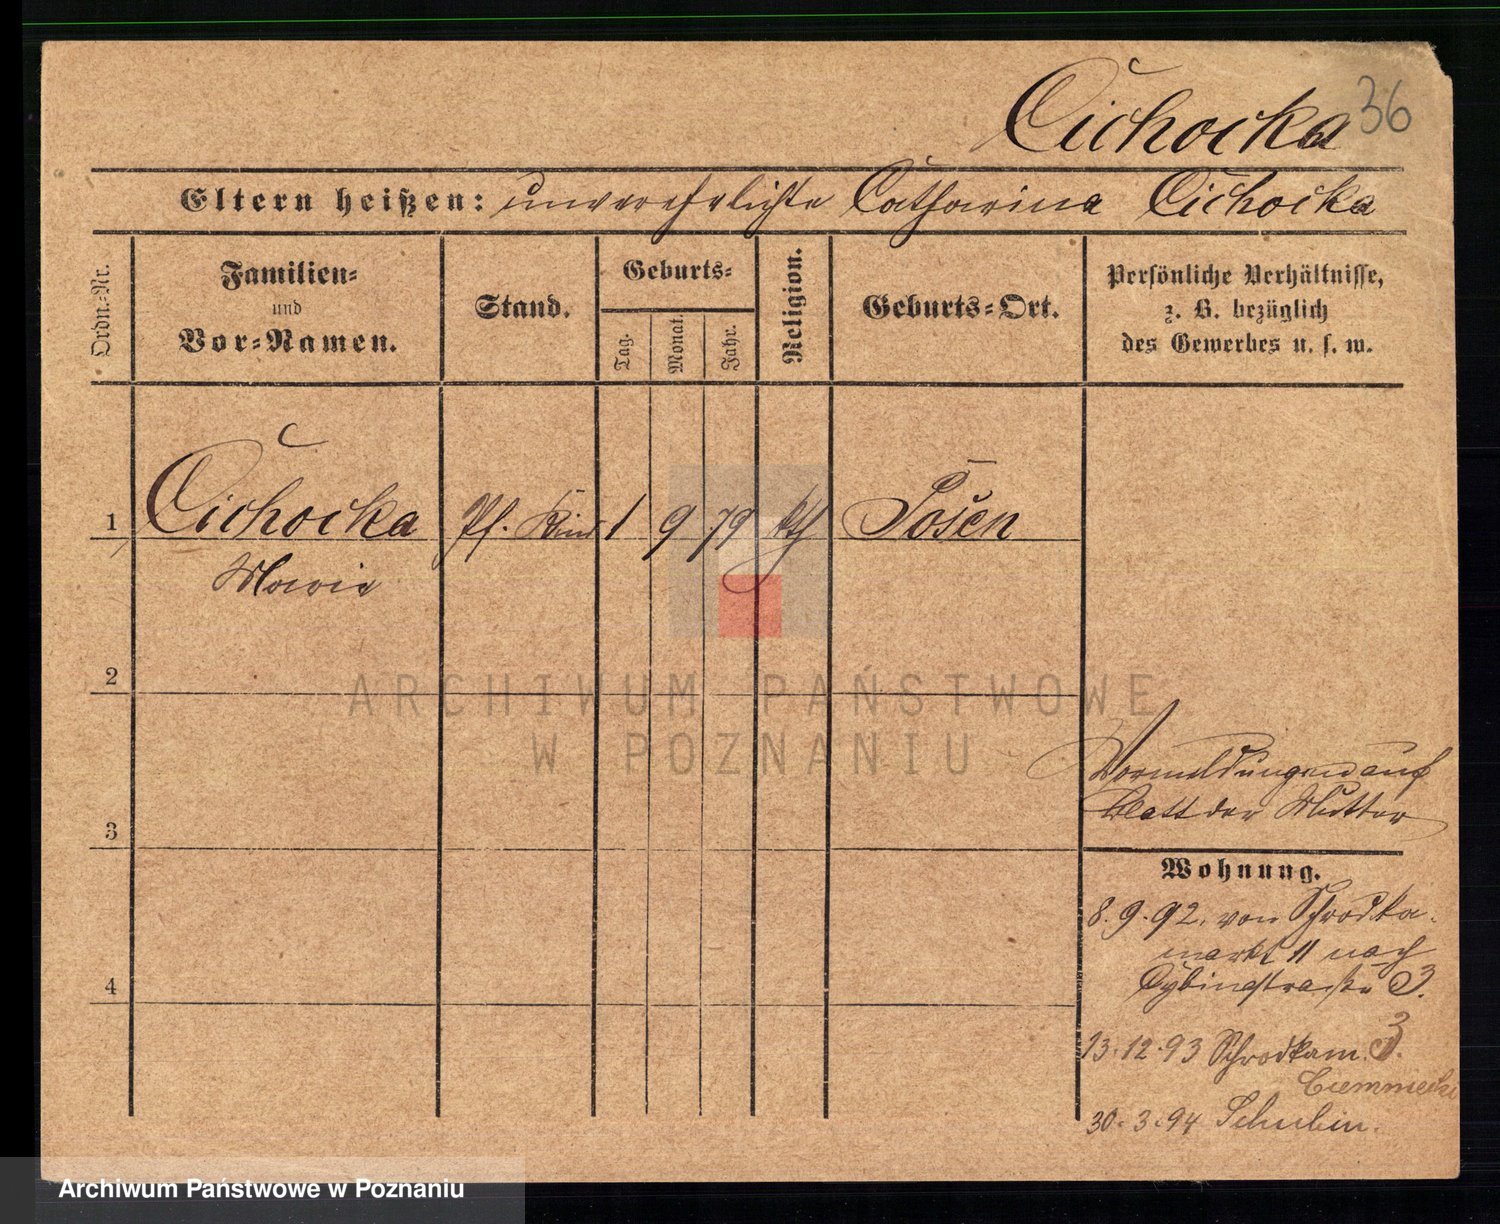 Cichocka 36
Eltern heißen: unverehelichte Catharina Cichocka
Ordn.-Nr.
Familien-
und
Vor-Namen.
Stand.
Geburts-
Tag.
Monat.
Jahr.
Religion.
Geburts-Ort.
Persönliche Verhältnisse,
z. B. bezüglich
des Gewerbes u. s. w.
1 Cichocka Pf. Kind 1 9 79 kth Posen
Marie
2
ARCHIWUM PAŃSTWOWE
W POZNANIU
Vormeldungen auf
Blatt der Mutter
3
Wohnung.
8.9.92. von Schrodka-
markt 11 nach
Cybinastraße 3.
4
13.12.93 Schrodkam. 3.
30.3.94 Schubin.
Archiwum Państwowe w Poznaniu